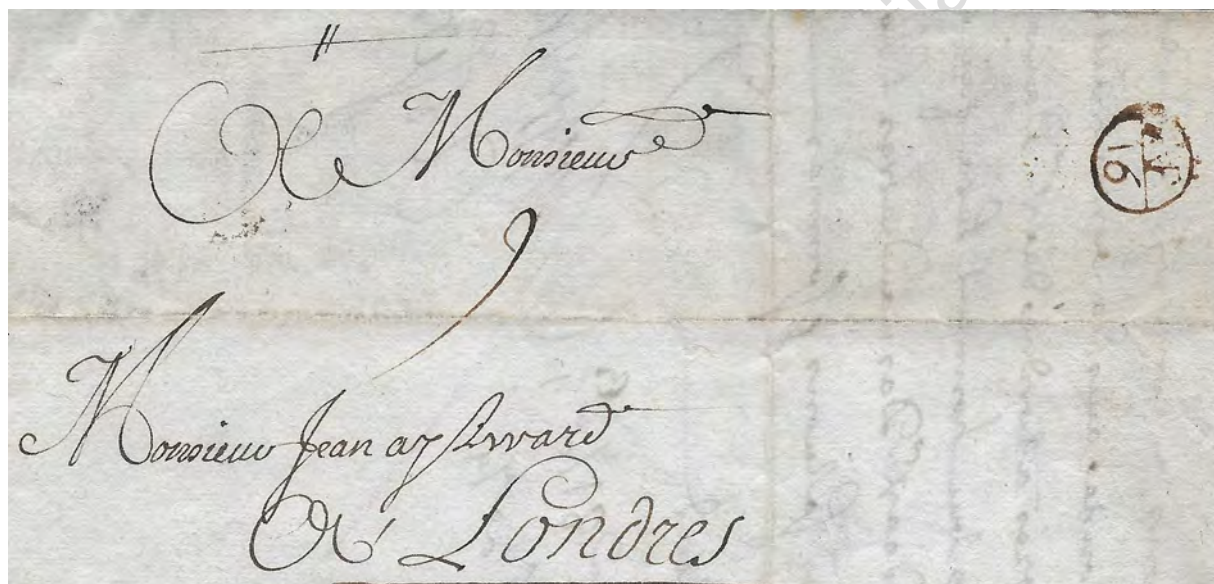 A Monsieur
9
Monsieur Jean aylward
A Londres
16